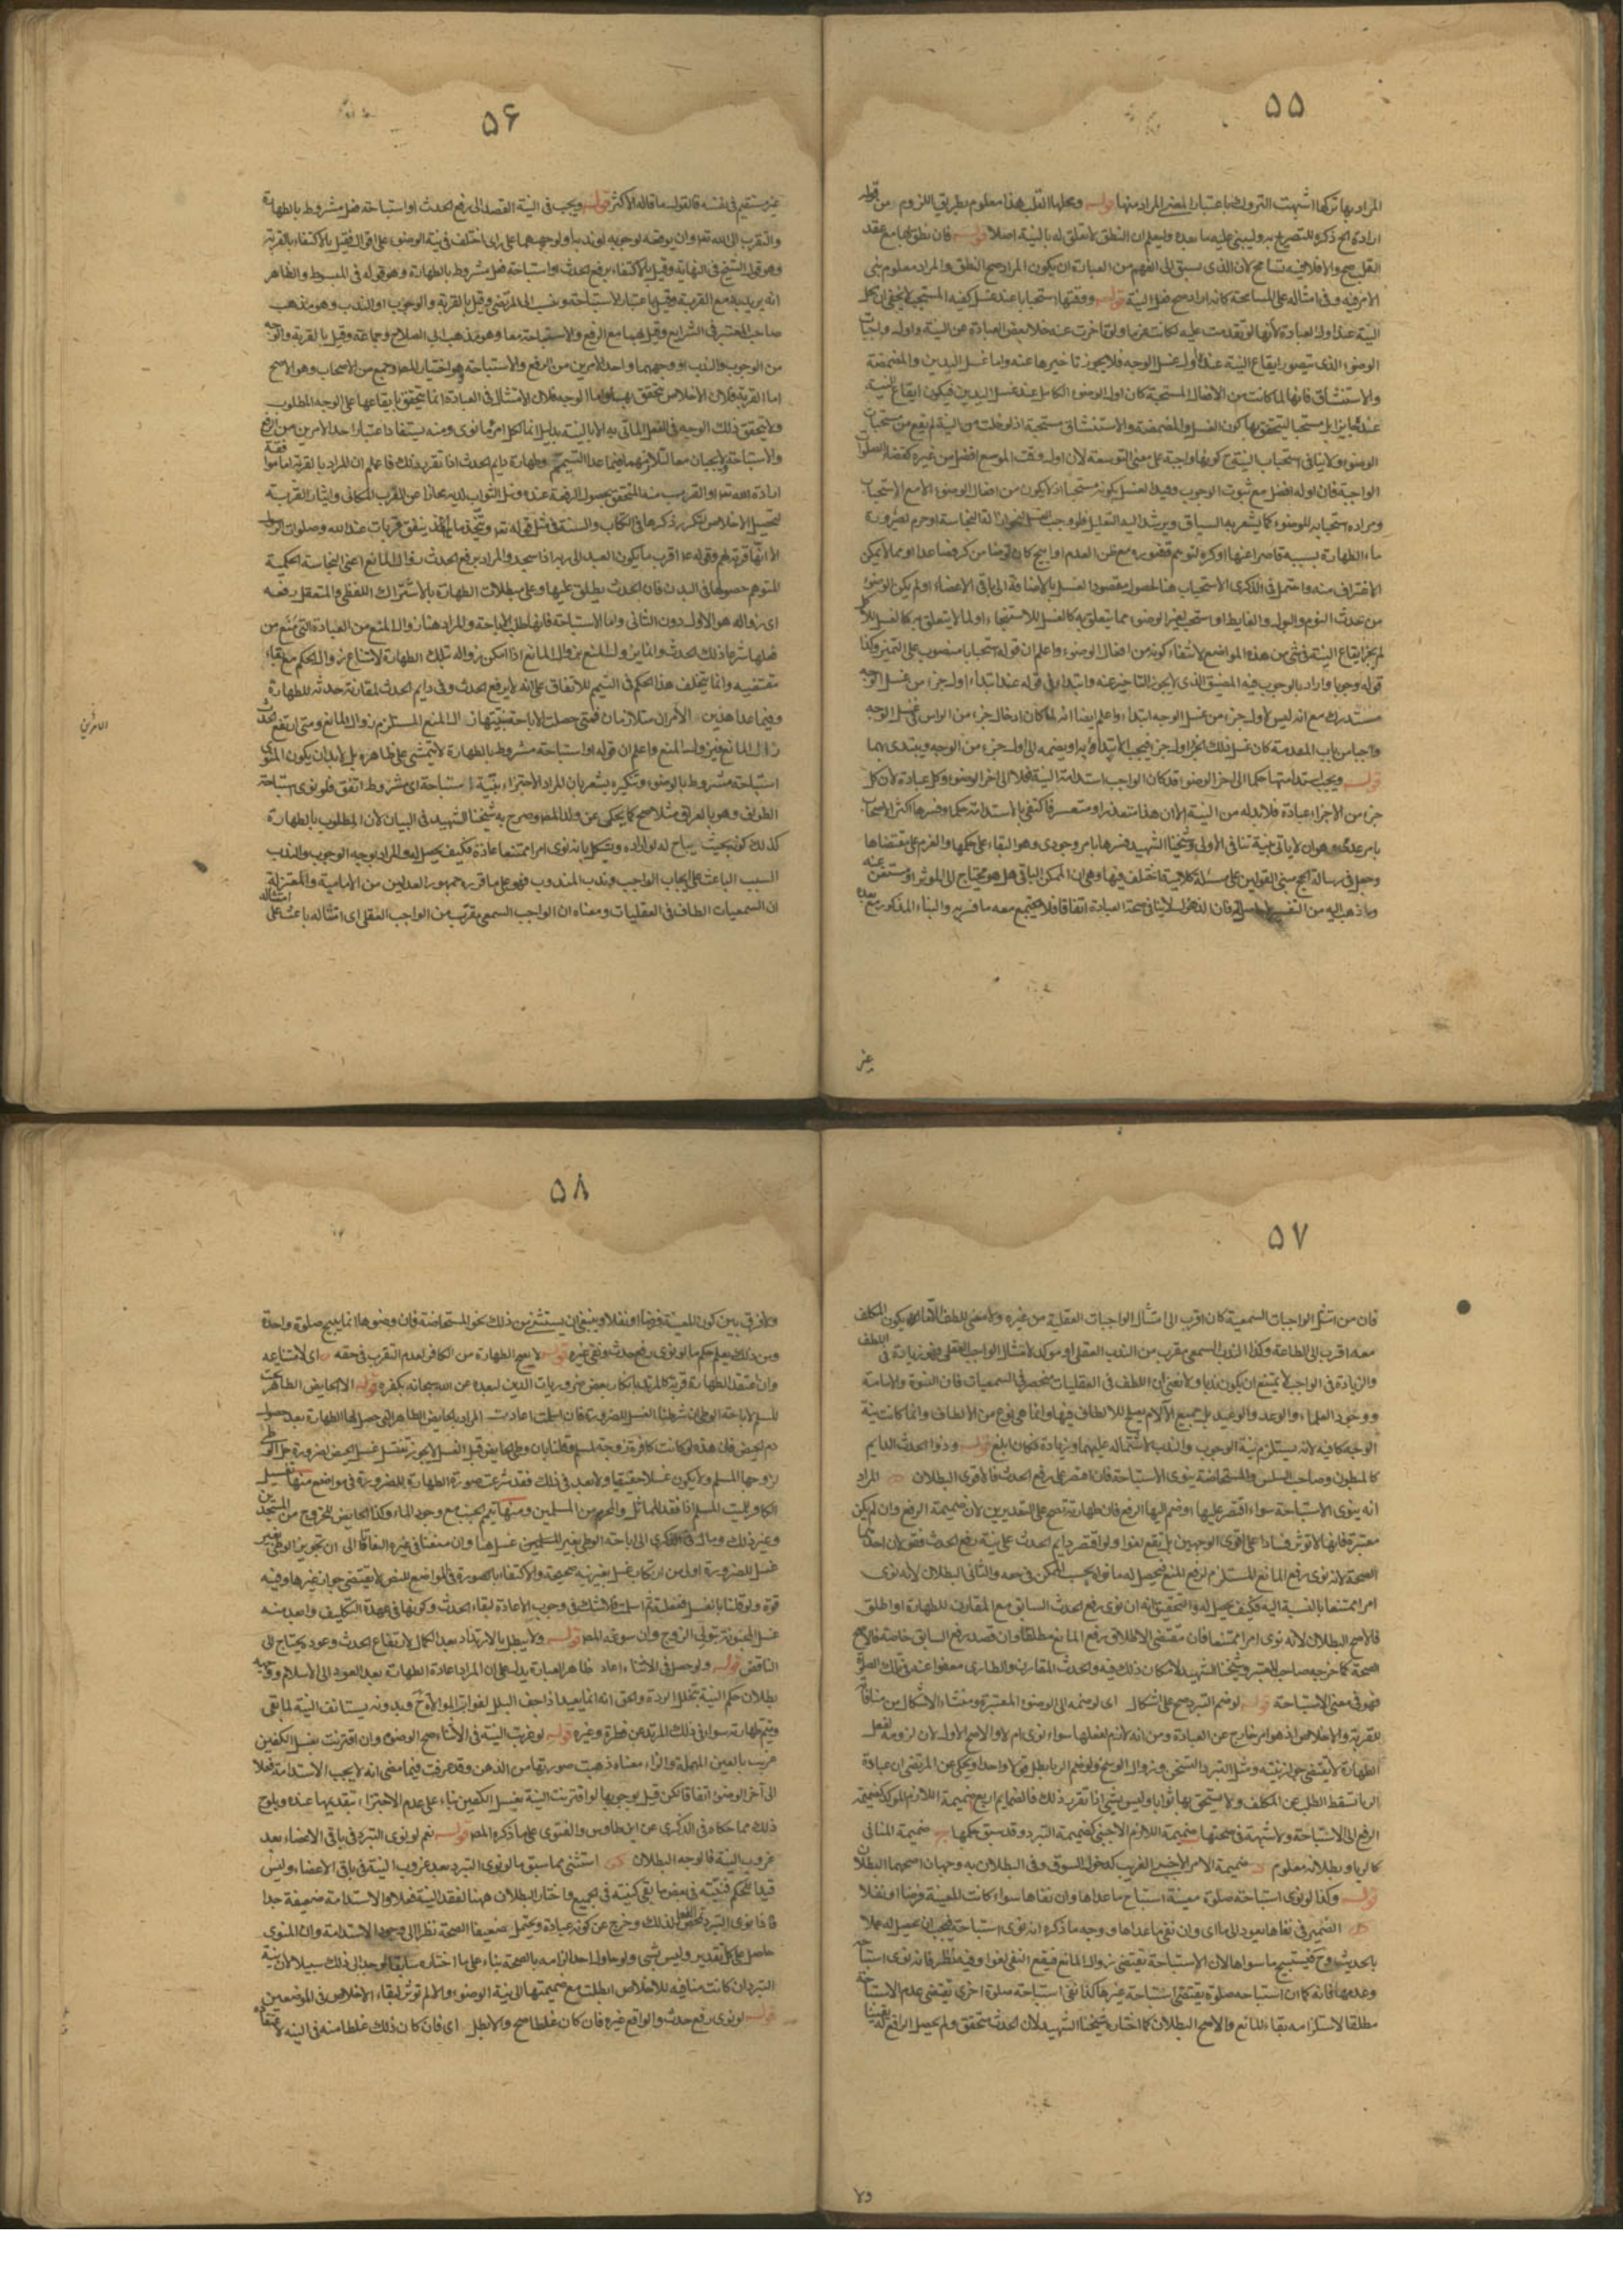 ۵۵
المراد بها تركها اشبهت التروك باعتبار المراد منها قوله ومحلها القلب هذا معلوم بطريق اللزوم من قوله
ارادة الخ ذكره للتصريح به وليبنى عليه ما بعده وليعلم ان النطق لا تعلق له بالنية اصلا قوله فان نطق بها مع عقد
القلب صح والا فلا فيه تسامح لان الذي يسبق الى الفهم من العبارة ان يكون المراد صح النطق والمراد معلوم
الامر فيه وفى امثاله على المسامحة كانه اراد صح فعل النية قوله ووقتها استحبابا عند غسل كفيه المستحب لا يخفى ان محل
النية عند اول العبادة لانها لو تقدمت عليه لكانت عزما ولو تأخرت عنه خلا بعض العبادة عن النية واول واجبات
الوضوء الذي يتصور ايقاع النية عنده اول غسل الوجه فلا يجوز تاخيرها عنه واما غسل اليدين والمضمضة
والاستنشاق فانها لما كانت من الافعال المستحبة كان اول الوضوء الكامل عند غسل اليدين فيكون ايقاع النية
الوضوء ولا ينافى استحباب النية ح كونها واجبة على معنى التوسعة لان اول وقت الموسع افضل من غيره كقضاء الصلوات
الواجبة فان اوله افضل مع ثبوت الوجوب وقيد الغسل بكونه مستحبا اذ لا يكون من افعال الوضوء الا مع الاستحباب
من حدث النوم والبول والغايط او استحب لغير الوضوء مما يتعلق به كالغسل للاستنجاء او لما لا يتعلق به كالغسل للاكل
لم يجز ايقاع النية فى شئ من هذه المواضع لانتفاء كونه من افعال الوضوء واعلم ان قوله استحبابا منصوب على التميز وكذا
قوله وجوبا واراد بالوجوب فيه المضيق الذي لا يجوز التاخير عنه وابتداء فى قوله عند ابتداء اول جزء من غسل الوجه
مستدرك مع انه ليس لاول جزء من غسل الوجه ابتداء واعلم ايضا انه لما كان ادخال جزء من الراس فى غسل الوجه
قوله ويجب استدامتها حكما الى اخر الوضوء قد كان الواجب استدامة النية فعلا الى اخر الوضوء وكل عبادة لان كل
جزء من الاجزاء عبادة فلا بد له من النية الا ان هذا متعذر او متعسر فاكتفى بالاستدامة حكما وفسرها اكثر الاصحاب
بامر عدمى وهو ان لا ياتى بنية تنافى الاولى وشيخنا الشهيد فسرها بامر وجودى وهو البقاء على حكمها والعزم على مقتضاها
وجعل فى رسالة الحج مبنى القولين على مسئلة كلامية اختلف فيها وهى ان الممكن الباقى هل هو محتاج الى المؤثر او مستغن عنه
غير
۵۶
غير مستقيم فى نفسه فالقول ما قاله الاكثر قوله ويجب فى النية القصد الى رفع الحدث او استباحة فعل مشروط بالطهارة
والتقرب الى الله تعالى وان يوقعه لوجوبه او ندبه او لوجههما على راى اختلف فى نية الوضوء على اقوال فقيل بالاكتفاء بالقربة
وهو قول الشيخ فى النهاية وقيل بالاكتفاء برفع الحدث او استباحة فعل مشروط بالطهارة وهو قوله فى المبسوط والظاهر
انه يريد به مع القربة وقيل باعتبار الاستباحة ونسب الى المرتضى وقيل بالقربة والوجوب او الندب وهو مذهب
صاحب المعتبر فى الشرايع وقيل بهما مع الرفع والاستباحة معا وهو مذهب ابى الصلاح وجماعة وقيل بالقربة والوجه
من الوجوب والندب او وجههما واحد الامرين من الرفع والاستباحة وهو اختيار المص وجمع من الاصحاب وهو الاصح
اما القربة فلان الاخلاص يتحقق بها واما الوجه فلان الامتثال فى العبادة انما يتحقق بايقاعها على الوجه المطلوب
ولا يتحقق ذلك الوجه فى الفعل الماتى به الا بالنية بدليل انما لكل امرئ ما نوى ومنه يستفاد اعتبار احد الامرين من الرفع
والاستباحة ولا يجبان معا لتلازمهما فيما عدا التيمم وطهارة دايم الحدث اذا تقرر ذلك فاعلم ان المراد بالقربة اما موافقة
ارادة الله تعالى او القرب منه المتحقق بحصول الرفعة عنده ونيل الثواب لديه مجازا عن القرب المكانى وايثار القربة
لتحصيل الاخلاص لتكرر ذكرها فى الكتاب والسنة فى مثل قوله تعالى ويتخذ ما ينفق قربات عند الله وصلوات الرسول
الا انها قربة لهم وقوله ع اقرب ما يكون العبد الى ربه اذا سجد والمراد برفع الحدث زوال المانع اعنى النجاسة الحكمية
المتوهم حصولها فى البدن فان الحدث يطلق عليها وعلى مبطلات الطهارة بالاشتراك اللفظى والمتعقل رفعه
اى زواله هو الاول دون الثانى واما الاستباحة فانها طلب الاباحة والمراد هنا زوال المنع من العبادة التى منع من
مقتضيه وانما يتخلف هذا الحكم فى التيمم للاتفاق على انه لا يرفع الحدث وفى دايم الحدث لمقارنة حدثه للطهارة
زال المانع فيزول المنع واعلم ان قوله او استباحة مشروط بالطهارة لا يتمشى على ظاهره بل لا بد ان يكون المنوى
استباحة مشروط بالوضوء وتنكيره يشعر بان المراد الاجتزاء بنية استباحة اى مشروط اتفق فلو نوى استباحة
الطواف وهو بالعراق مثلا صح كما يحكى عن ولد المص وصرح به شيخنا الشهيد فى البيان لان المطلوب بالطهارة
كذلك كونه بحيث يباح له لو اراده ويشكل بانه نوى امرا ممتنعا عادة فكيف يحصل له والمراد بوجه الوجوب والندب
السبب الباعث على ايجاب الواجب وندب المندوب فهو على ما قرره جمهور العدليين من الامامية والمعتزلة
ان السمعيات الطاف فى العقليات ومعناه ان الواجب السمعى مقرب من الواجب العقلى اى امتثاله باعث على امتثاله
۵۷
فان من امتثل الواجبات السمعية كان اقرب الى امتثال الواجبات العقلية من غيره ولا معنى للطف الا ما يكون المكلف
معه اقرب الى الطاعة وكذا الندب السمعى مقرب من الندب العقلى او موكد لامتثال الواجب العقلى فهو زيادة فى اللطف
والزيادة فى الواجب لا يمتنع ان يكون ندبا ولا نعنى ان اللطف فى العقليات منحصر فى السمعيات فان النبوة والامامة
ووجود العلماء والوعد والوعيد بل جميع الآلام يصلح للالطاف فيها وانما هى نوع من الالطاف وانما كانت نية
الوجه كافيه لانه يستلزم نية الوجوب والندب لاشتماله عليهما وزيادة فكان ابلغ قوله وذوا الحدث الدايم
كالمبطون وصاحب السلس والمستحاضة ينوى الاستباحة فان اقتصر على رفع الحدث فالاقوى البطلان المراد
انه ينوى الاستباحة سواء اقتصر عليها او ضم اليها الرفع فان طهارته تصح على التقديرين لان ضميمة الرفع وان لم يكن
معتبرة فانها لا تؤثر فسادا على اقوى الوجهين بل يقع لغوا ولو اقتصر دايم الحدث على نية رفع الحدث فقولان احدهما
الصحة لانه نوى رفع المانع المستلزم لرفع المنع فيحصل له ما نواه بحسب الممكن فى حقه والثانى البطلان لانه نوى
امرا ممتنعا بالنسبة اليه فكيف يحصل له والتحقيق انه ان نوى رفع الحدث السابق مع المقارن للطهارة او اطلق
فالاصح البطلان لانه نوى امرا ممتنعا فان مقتضى الاطلاق رفع المانع مطلقا وان قصد رفع السابق خاصة فالاصح
الصحة كما خرجه صاحب المعتبر وشيخنا الشهيد لامكان ذلك فيه والحدث المقارن والطارى معفوا عنه فى تلك الصلوة
فهو فى معنى الاستباحة قوله لو ضم التبرد صح على اشكال اى لو ضمه الى الوضوء المعتبر ومنشاء الاشكال من منافاته
للقربة والاخلاص اذ هو امر خارج عن العبادة ومن انه لازم لفعلها سواء نوى ام لا والاصح الاول لان لزومه لفعل
الطهارة لا يقتضى جواز نيته ومثل التبرد التسخن وزوال الوسخ ولو ضم الريا بطل قولا واحدا ويحكى عن المرتضى ان عبادة
الريا تسقط الطلب عن المكلف ولا يستحق بها ثوابا وليس بشئ اذا تقرر ذلك فالضمايم اربع ضميمة اللازم الموكد كضميمة
الرفع الى الاستباحة ولا شبهة فى صحتها ضميمة اللازم الاجنبى كضميمة التبرد وقد سبق حكمها ضميمة المنافى
كالريا وبطلانه معلوم ضميمة الامر الاجنبى الغريب كدخول السوق وفى البطلان به وجهان اصحهما البطلان
قوله وكذا لو نوى استباحة صلوة معينة استباح ما عداها وان نفاها سواء كانت المعينة فرضا او نفلا
الضمير فى نفاها يعود الى ما اى وان نفى ما عداها ووجه ما ذكره انه نوى استباحة فيجب ان يحصل له عملا
بالحديث وح فيستبيح ما سواها لان الاستباحة تقتضى زوال المانع فيقع النفى لغوا وفيه نظر فانه نوى استباحة
وعدمها فانه كما ان استباحه صلوة يقتضى استباحة غيرها كذا نفى استباحة صلوة اخرى يقتضى عدم الاستباحة
مطلقا لاستلزامه بقاء المانع والاصح البطلان كما اختاره شيخنا الشهيد لان الحدث متحقق ولم يحصل الرافع له يقينا
ولا
۵۸
ولا فرق بين كون المعينة فرضا او نفلا وينبغى ان يستثنى من ذلك نحو المستحاضة فان وضوها انما يبيح صلوة واحدة
ومن ذلك يعلم حكم ما لو نوى رفع حدث ونفى غيره قوله لا يصح الطهارة من الكافر لعدم التقرب فى حقه اى لامتناعه
وان اعتقد الطهارة قربة كالمرتد بانكار بعض ضروريات الدين لبعده عن الله سبحانه بكفره قوله الا الحايض الطاهر تحت
المسلم لاباحة الوطى ان شرطنا الغسل للضرورة فان اسلمت اعادت المراد بالحايض الطاهر التى حصل لها الطهارة بعد حصول
دم الحيض فان هذه لو كانت كافرة زوجة لمسلم وقلنا بان وطى الحايض قبل الغسل لا يجوز تغتسل غسل الحيض لضرورة حل الوطى
لزوجها المسلم ولا يكون غسلا حقيقيا ولا بعد فى ذلك فقد شرعت صورة الطهارة للضرورة فى مواضع منها تغسيل
الكافر لميت المسلم اذا فقد المماثل والمحرم من المسلمين ومنها تيمم الجنب مع وجود الماء وكذا الحايض للخروج من المسجدين
غسل للضرورة اولى من ارتكاب غسل بغير نية صحيحة والاكتفاء بالصورة فى المواضع للنص لا يقتضى جوازه فى غيرها وفيه
قوة ولو قلنا بالغسل ففعلته ثم اسلمت فلا شك فى وجوب الاعادة لبقاء الحدث وكونها فى عهدة التكليف وابعد منه
غسل المجنونة بتولى الزوج وان سوغه المص قوله ولا يبطل بالارتداد بعد الكمال لارتفاع الحدث وعوده يحتاج الى
الناقض قوله ولو حصل فى الاثناء اعاد ظاهر العبارة يدل على ان المراد اعادة الطهارة بعد العود الى الاسلام ووجهه
بطلان حكم النية بتخلل الردة والحق انه انما يعيد اذا جف البلل لفوات الموالاة ح وبدونه يستانف النية لما بقى
ويتم طهارته سواء فى ذلك المرتد عن فطرة وغيره قوله لو عزبت النية فى الاثناء صح الوضوء وان اقترنت بغسل الكفين
عزب بالعين المهملة والزاء معناه ذهبت صورتها من الذهن وقد عرفت فيما مضى انه لا يجب الاستدامة فعلا
الى آخر الوضوء اتفاقا لكن قيل بوجوبها لو اقترنت النية بغسل الكفين بناء على عدم الاجتزاء بتقديمها عنده ويلوح
ذلك مما حكاه فى الذكرى عن ابن طاوس والفتوى على ما ذكره المص قوله نعم لو نوى التبرد فى باقى الاعضاء بعد
عزوب النية فالوجه البطلان استثنى مما سبق ما لو نوى التبرد بعد عزوب النية فى باقى الاعضاء وليس
قيدا للحكم فنيته فى بعض ما بقى كنيته فى الجميع واختار البطلان هنا لفقد النية فعلا والاستدامة ضعيفة جدا
فاذا نوى التبرد تمحض الفعل لذلك وخرج عن كونه عبادة ويحتمل ضعيفا الصحة نظرا الى وجود الاستدامة وان المنوى
حاصل على كل تقدير وليس بشئ ولو حاول احد الزامه بالصحة بناء على ما اختاره سابقا لوجد الى ذلك سبيلا لان نية
التبرد ان كانت منافيه للاخلاص ابطلت مع ضميمتها الى نية الوضوء والا لم تؤثر لبقاء الاخلاص فى الموضعين
قوله لو نوى رفع حدث والواقع غيره فان كان غلطا صح والا بطل اى فان كان ذلك غلطا منه فى النية